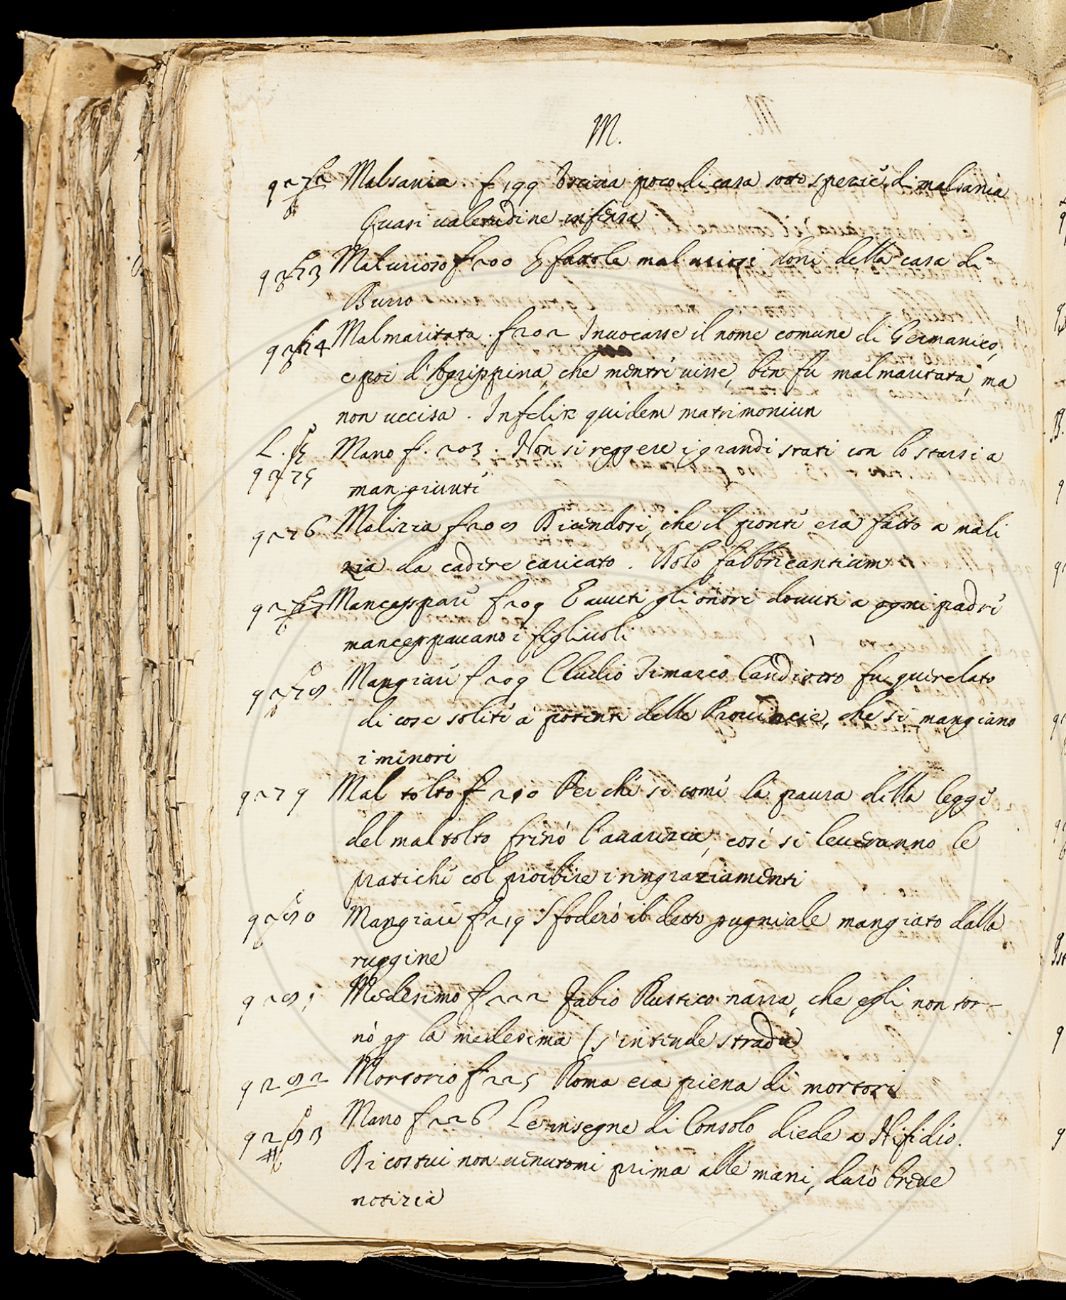 M.
9272 Malsania f 199 Usciva poco di casa sotto spezie di malsania
Quasi valetudine infensa
9273 Malurioso f 200 E fattole mal uriosi doni della casa di
Burro
9274 Malmaritata. f 202 Invocasse il nome comune di Germanico,
e poi d'Agrippina, che mentre visse, ben fu malmaritata, ma
non uccisa. Infelix quidem matrimonium
L. 9275 Mano f. 203. Non si reggere i grandi stati con lo starsi a
man giunte
9276 Malizia f 208 Dicendosi, che il ponte era fatto a mali
zia da cadere caricato. Dolo fabbricantium
9277 Manceppare f 209 E avuti gli onori dovuti a ogni padre
manceppavano i figliuoli
9278 Mangiare f 209 Claudio Timarco Candiotto fu querelato
di cose solite a potenti delle Provincie, che si mangiano
i minori
9279 Mal tolto f 210 Perchè si come la paura della legge
del maltolto frenò l'avarizia, così si leveranno le
pratiche col proibire i ringraziamenti
9280 Mangiare f 219 Sfoderò il detto pugnale mangiato dalla
ruggine
9281 Medesimo f 222 Fabio Rustico narra, che egli non tor-
nò per la medesima (s'intende strada)
9282 Mortorio f 225 Roma era piena di mortori
9283 Mano f 226 Le insegne di Consolo diede a Nifidio.
Di costui non venutomi prima alle mani, darò breve
notizia